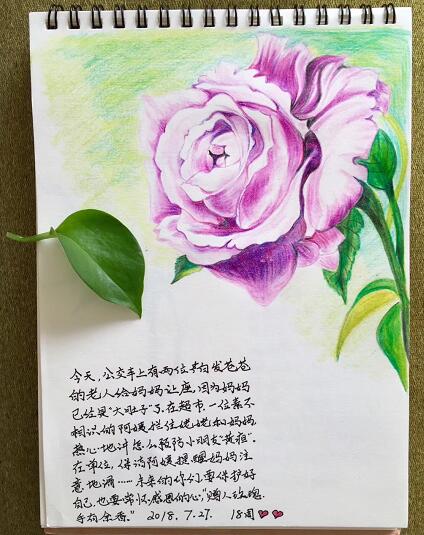 今天，公交车上有两位白发苍苍
的老人给妈妈让座，因为妈妈
已经是“大肚子”了。在超市，一位素不
相识的阿姨拦住姥姥和妈妈
热心地讲怎么预防小朋友“黄疸”。
在单位，保洁阿姨提醒妈妈注
意地滑……未来的你们要保护好
自己，也要常怀感恩的心，“赠人玫瑰，
手有余香。” 2018.7.27. 18周